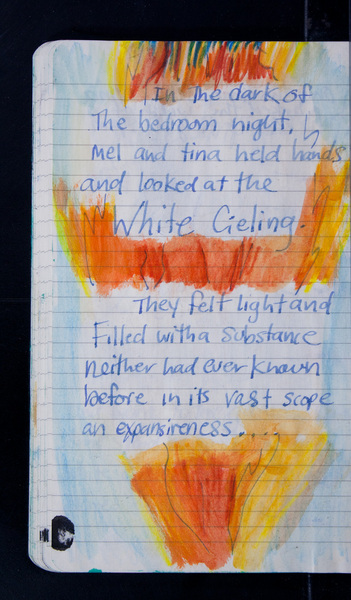 In The dark of
The bedroom night,
Mel and tina held hands
and looked at the
White Cieling.
They felt light and
Filled with a Substance
neither had ever known
before in its vast scope
an expansireness....